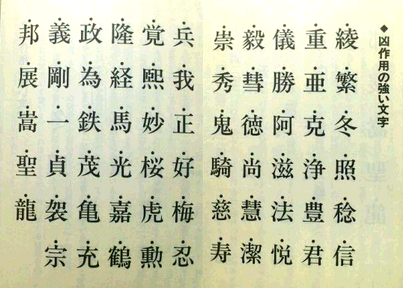 ◆凶作用の強い文字
綾繁冬照稔信
重亜克浄豊君
儀勝阿滋法悦
毅彗徳尚慧潔
崇秀鬼騎慈寿
兵我正好梅忍
覚熙妙桜虎勲
隆経馬光嘉鶴
政為鉄茂亀充
義剛一貞袈宗
邦展嵩聖龍